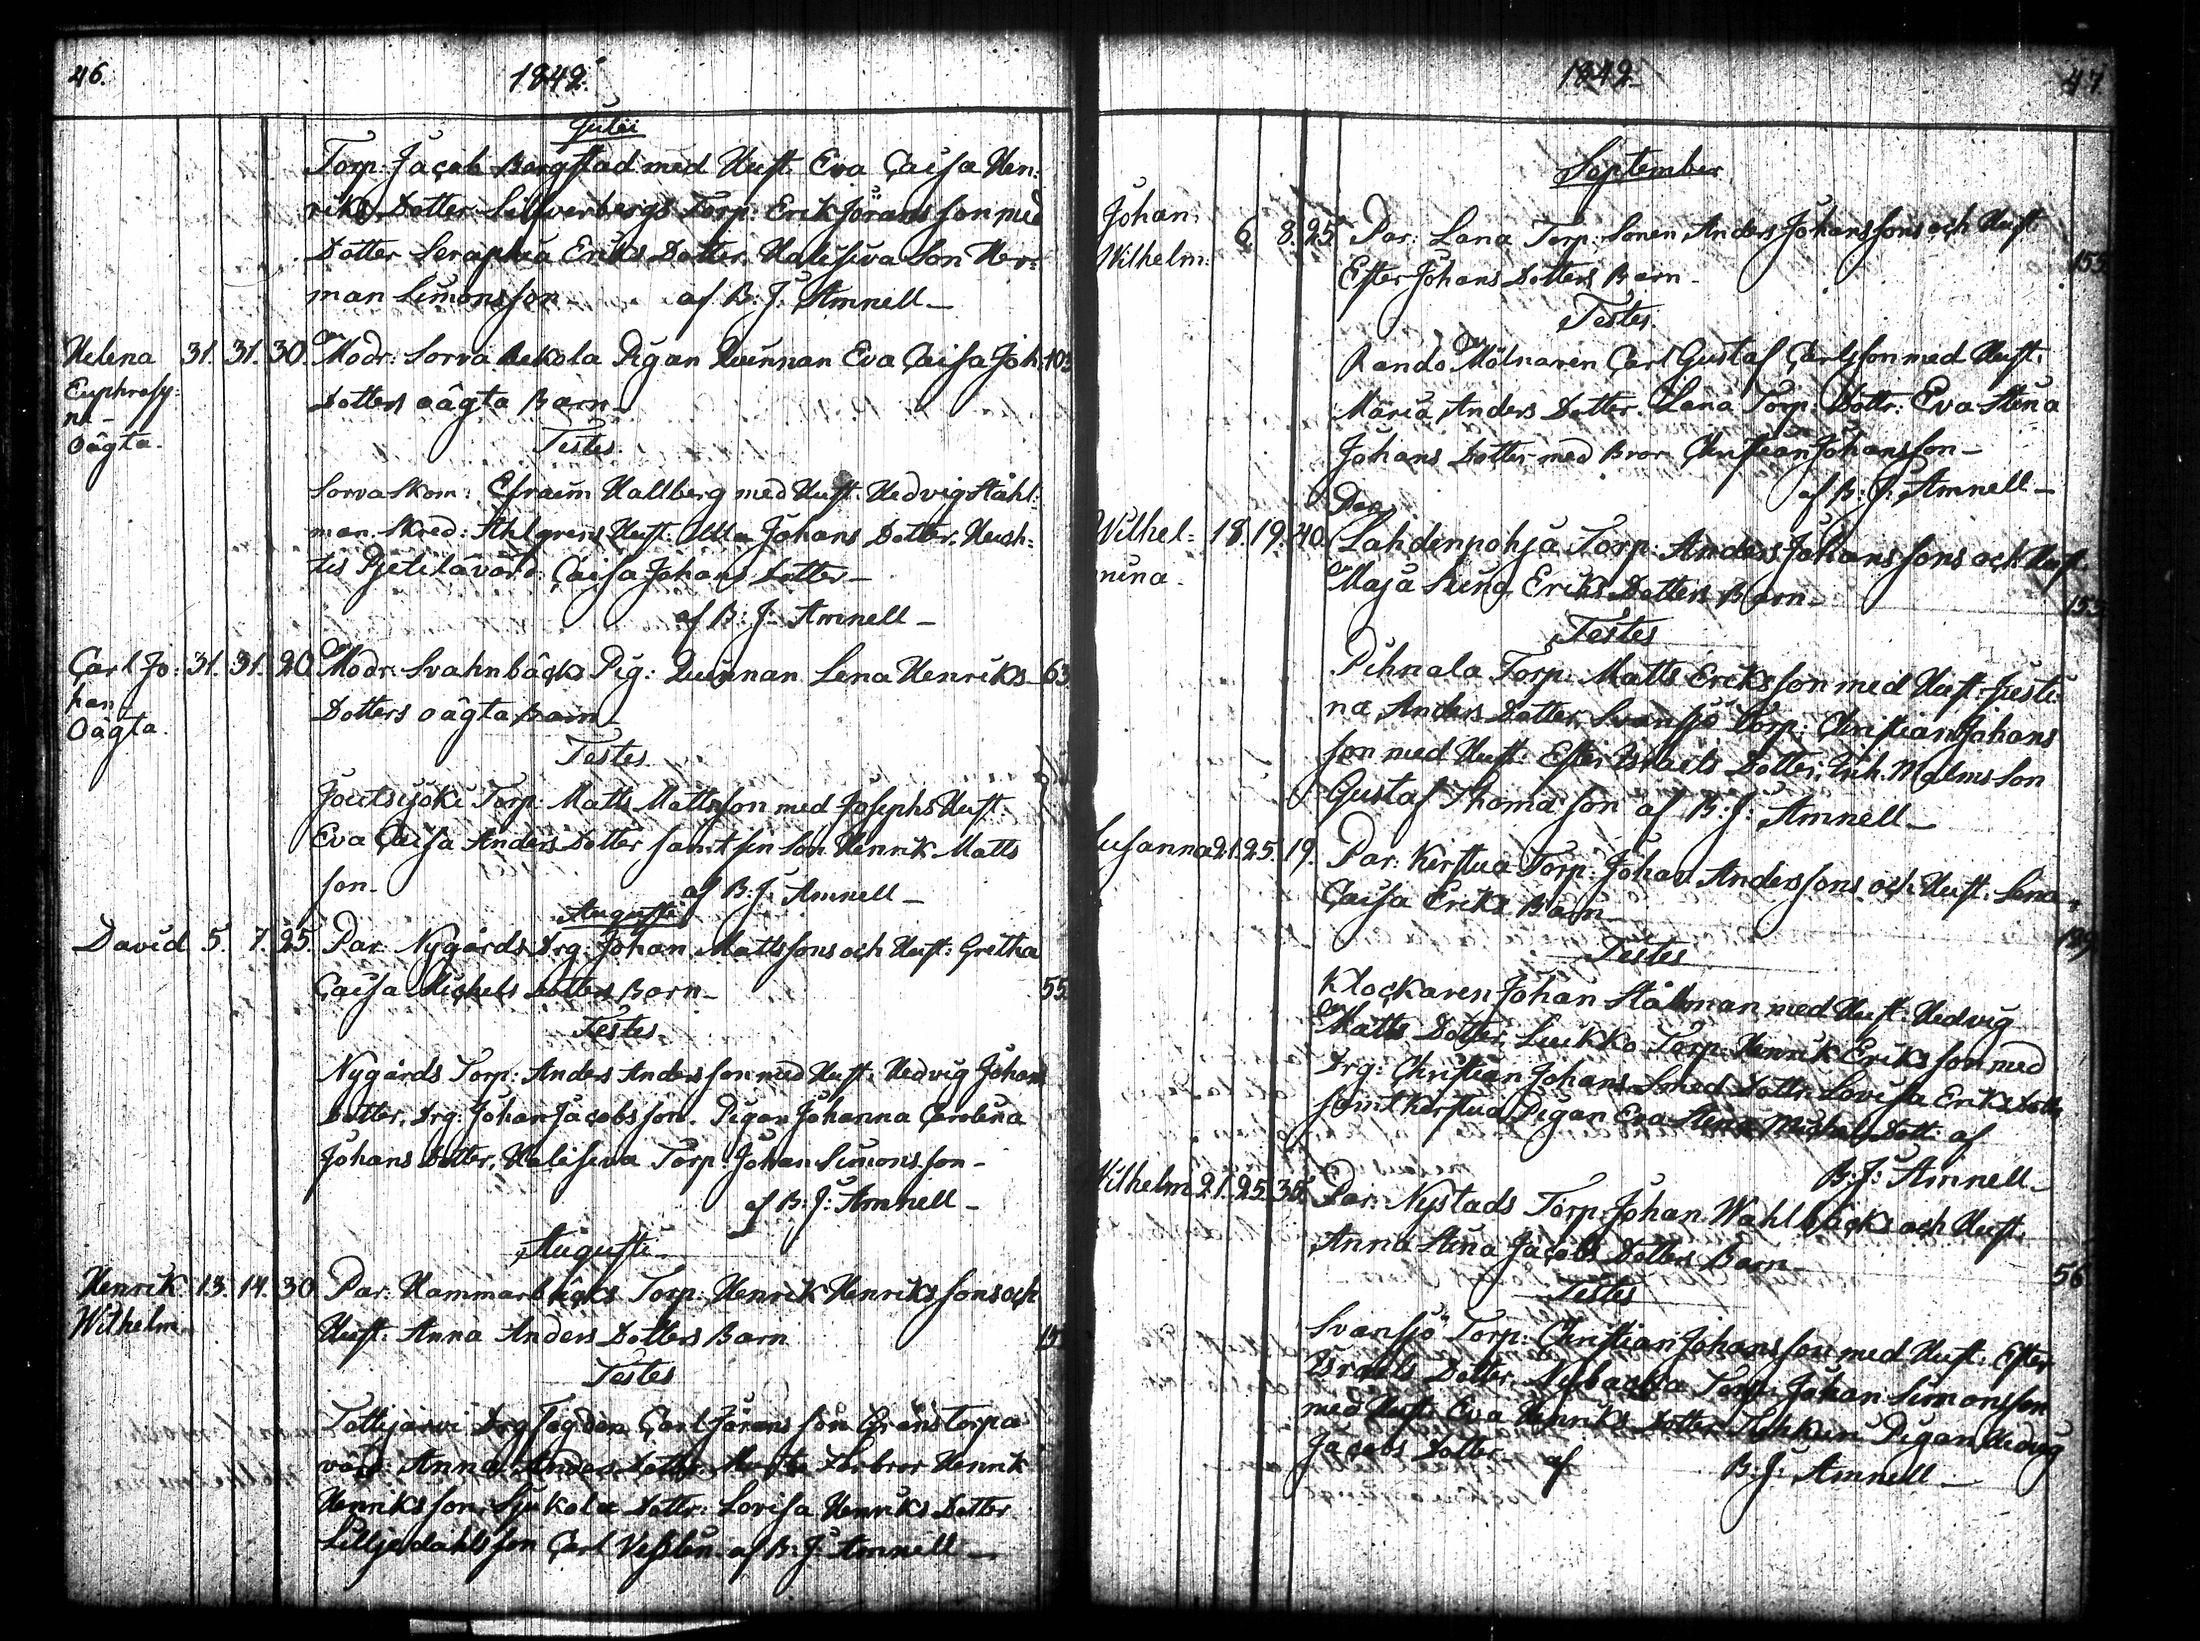 46. 1842.
Julii
Torp: Jacob Bergstad med Hust. Eva Caisa Hen-
riks Dotter. Silfverbergs Torp: Erik Jöransson med
Dotter Seraphia Eriks Dotter. Halisiva Son Her-
man Simonsson – af B: J: Amnell –
Helena Euphrosy- na – Oägta. 31. 31. 30. Modr: Sorva Pigan Quinnan Eva Caisa Joh: 103
Dotters oägta Barn –
Testes.
Sorva Skom: Efraim Hallberg med Hust. Hedvig Ståhl-
man. Skred: Ahlgrens Hust: Ulla Johans Dotter.
Caisa Johans Dotter –
af B: J: Amnell –
Carl Jo- han Oägta. 31. 31. 20. Modr: Svahnbäcks Pig: Quinnan Lena Henriks 63
Dotters oägta Barn –
Testes.
Joutsijoki Torp: Matts Mattsson med Josephs Hust.
Eva Caisa Anders Dotter samt sin Son Henrik Matts
son – af B: J: Amnell –
Augusti
David 5. 7. 25. Par: Nygårds Drg: Johan Mattssons och Hust: Gretha
Caisa Michels Dotters Barn – 55
Testes.
Nygårds Torp: Anders Andersson med Hust: Hedvig Johans
Dotter, Drg: Johan Jacobsson. Pigan Johanna Carolina
Johans Dotter, Halisiva Torp: Johan Simonsson –
af B: J: Amnell –
Augusti –
Henrik Wilhelm 13. 14. 30. Par: Hammarbäcks Torp: Henrik Henrikssons och
Hust: Anna Anders Dotters Barn 15
Testes
Tottijärvi Drg Carl Jöransson
Anna Anders Dotter Henrik
Henriksson. Dottr: Lovisa Henriks Dotter.
Lilljedahls son Carl af B: J: Amnell –
1842. 47.
September
Johan Wilhelm. 6. 8. 25. Par: Lana Torp: Sonen Anders Johanssons och Hust.
Ester Johans Dotters Barn – 153
Testes.
Rando Mölnaren Carl Gustaf Carlsson med Hust.
Maria Anders Dotter. Lana Torp: Dottr: Eva Stina
Johans Dotter med Bror Christian Johansson –
af B: J: Amnell –
Par:
Wilhel- mina. 18. 19. 40. Lahdenpohja Torp: Anders Johanssons och Hust.
Maja Stina Eriks Dotters Barn –
Testes
Pihnala Torp: Matts Eriksson med Hust. Justi-
na Anders Dotter, Svansjö Torp: Christian Johans
son med Hust: Ester Israels Dotter, Malms Son
Gustaf Thomasson af B: J: Amnell –
Susanna 21. 25. 19. Par: Kerttua Torp: Johan Anderssons och Hust: Lena
Caisa Eriks Barn –
Testes
Klockaren Johan Ståhlman med Hust. Hedvig
Matts Dotter, Luukko Torp: Henrik Eriksson med
Drg: Christian Johans Smed Dottr: Lovisa Eriks Dotter
samt Kerttua Pigan Eva Stina Michels Dott: af
B: J: Amnell –
Wilhelm 21. 25. 35. Par: Nystads Torp: Johan Wahlbäcks och Hust.
Anna Stina Jacobs Dotters Barn – 56
Testes
Svansjö Torp: Christian Johansson med Hust: Ester
Israels Dotter. Nybacka Torp: Johan Simonsson
med Hust: Eva Henriks Dotter Pigan Hedvig
Jacobs Dotter. af B: J: Amnell –